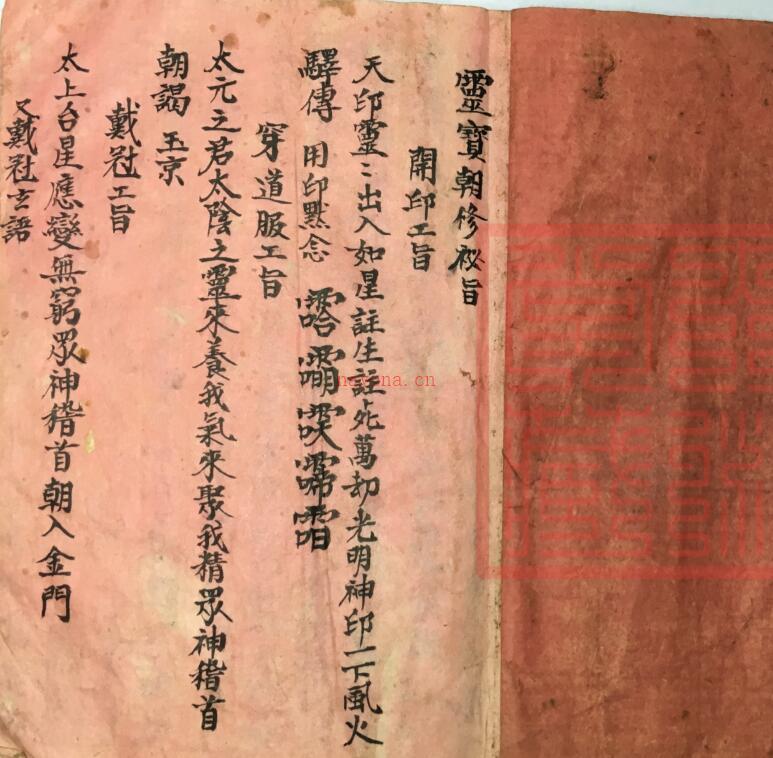 靈寶朝修祕旨
開印工旨
天印靈〻出入如星註生註死萬劫光明神印一下風火
驛傳 用印默念
穿道服工旨
太元之君太陰之靈來養我氣來聚我精眾神稽首
朝謁 玉京
戴冠工旨
太上台星應變無窮眾神稽首朝入金門
又戴冠玄語